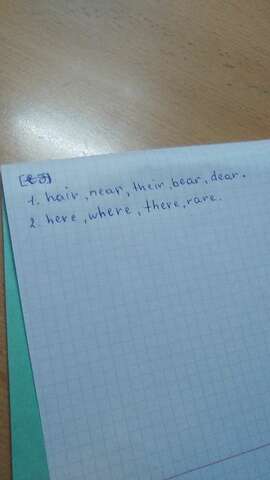 1. hair, near, their, bear, dear.
2. here, where, there, rare.